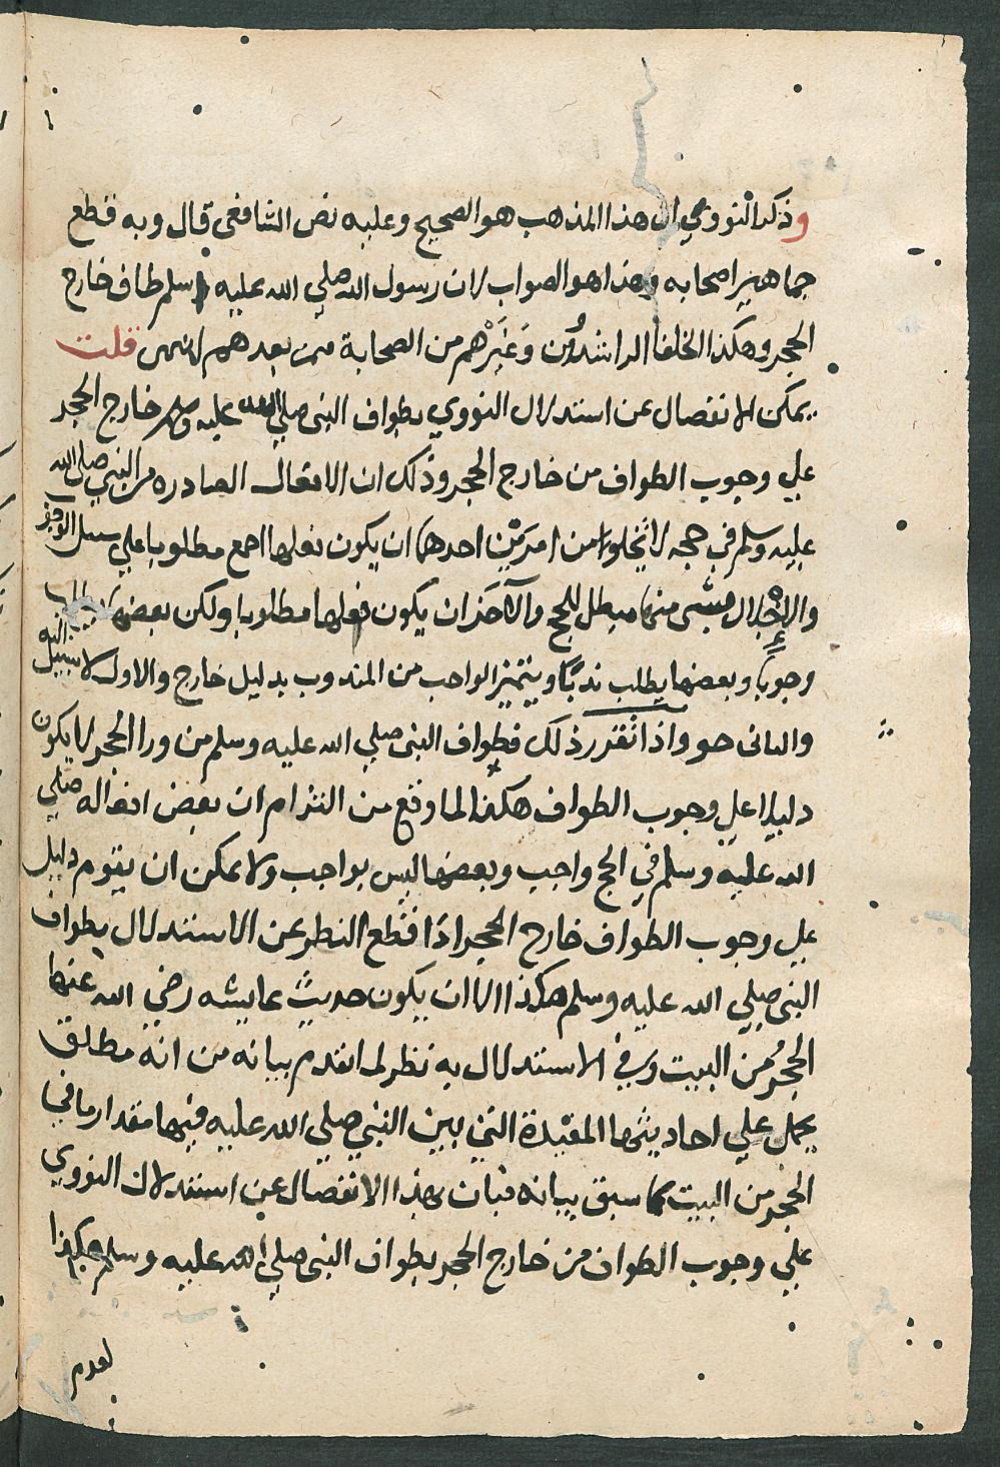 وذكر النووي ان هذا المذهب هو الصحيح وعليه نص الشافعي قال وبه قطع
جماهير اصحابه وهذا هو الصواب لان رسول الله صلي الله عليه وسلم طاف خارج
الحجر وهكذا الخلفا الراشدون وغيرهم من الصحابة فمن بعدهم انتهى قلت
يمكن الانفصال عن استدلال النووي بطواف النبي صلي الله عليه وسلم خارج الحجر
علي وجوب الطواف من خارج الحجر وذلك ان الافعال الصادره من النبي صلي الله
عليه وسلم في حجه لا تخلوا من امرين احدهما ان يكون فعلها اجمع مطلوبا علي سبيل الوجوب
والاخلال بشي منها مبطل للحج والآخر ان يكون فعلها مطلوبا ولكن بعضها يطلب
وجوبا وبعضها يطلب ندبا ويتميز الواجب من المندوب بدليل خارج والاول لا سبيل اليه
والثاني هو واذا تقرر ذلك فطواف النبي صلي الله عليه وسلم من ورا الحجر لا يكون
دليلا علي وجوب الطواف هكذا لما وقع من التزام ان بعض افعاله صلي
الله عليه وسلم في الحج واجب وبعضها ليس بواجب ولا يمكن ان يقوم دليل
علي وجوب الطواف خارج الحجر اذا قطع النظر عن الاستدلال بطواف
النبي صلي الله عليه وسلم هكذا الا ان يكون حديث عايشه رضي الله عنها
الحجر من البيت وفي الاستدلال به نظر لما تقدم بيانه من انه مطلق
يحمل علي احاديثها المقيدة التي بين النبي صلي الله عليه فيها مقدار ما في
الحجر من البيت كما سبق بيانه فبان بهذا الانفصال عن استدلال النووي
علي وجوب الطواف من خارج الحجر بطواف النبي صلي الله عليه وسلم هكذا
لعدم